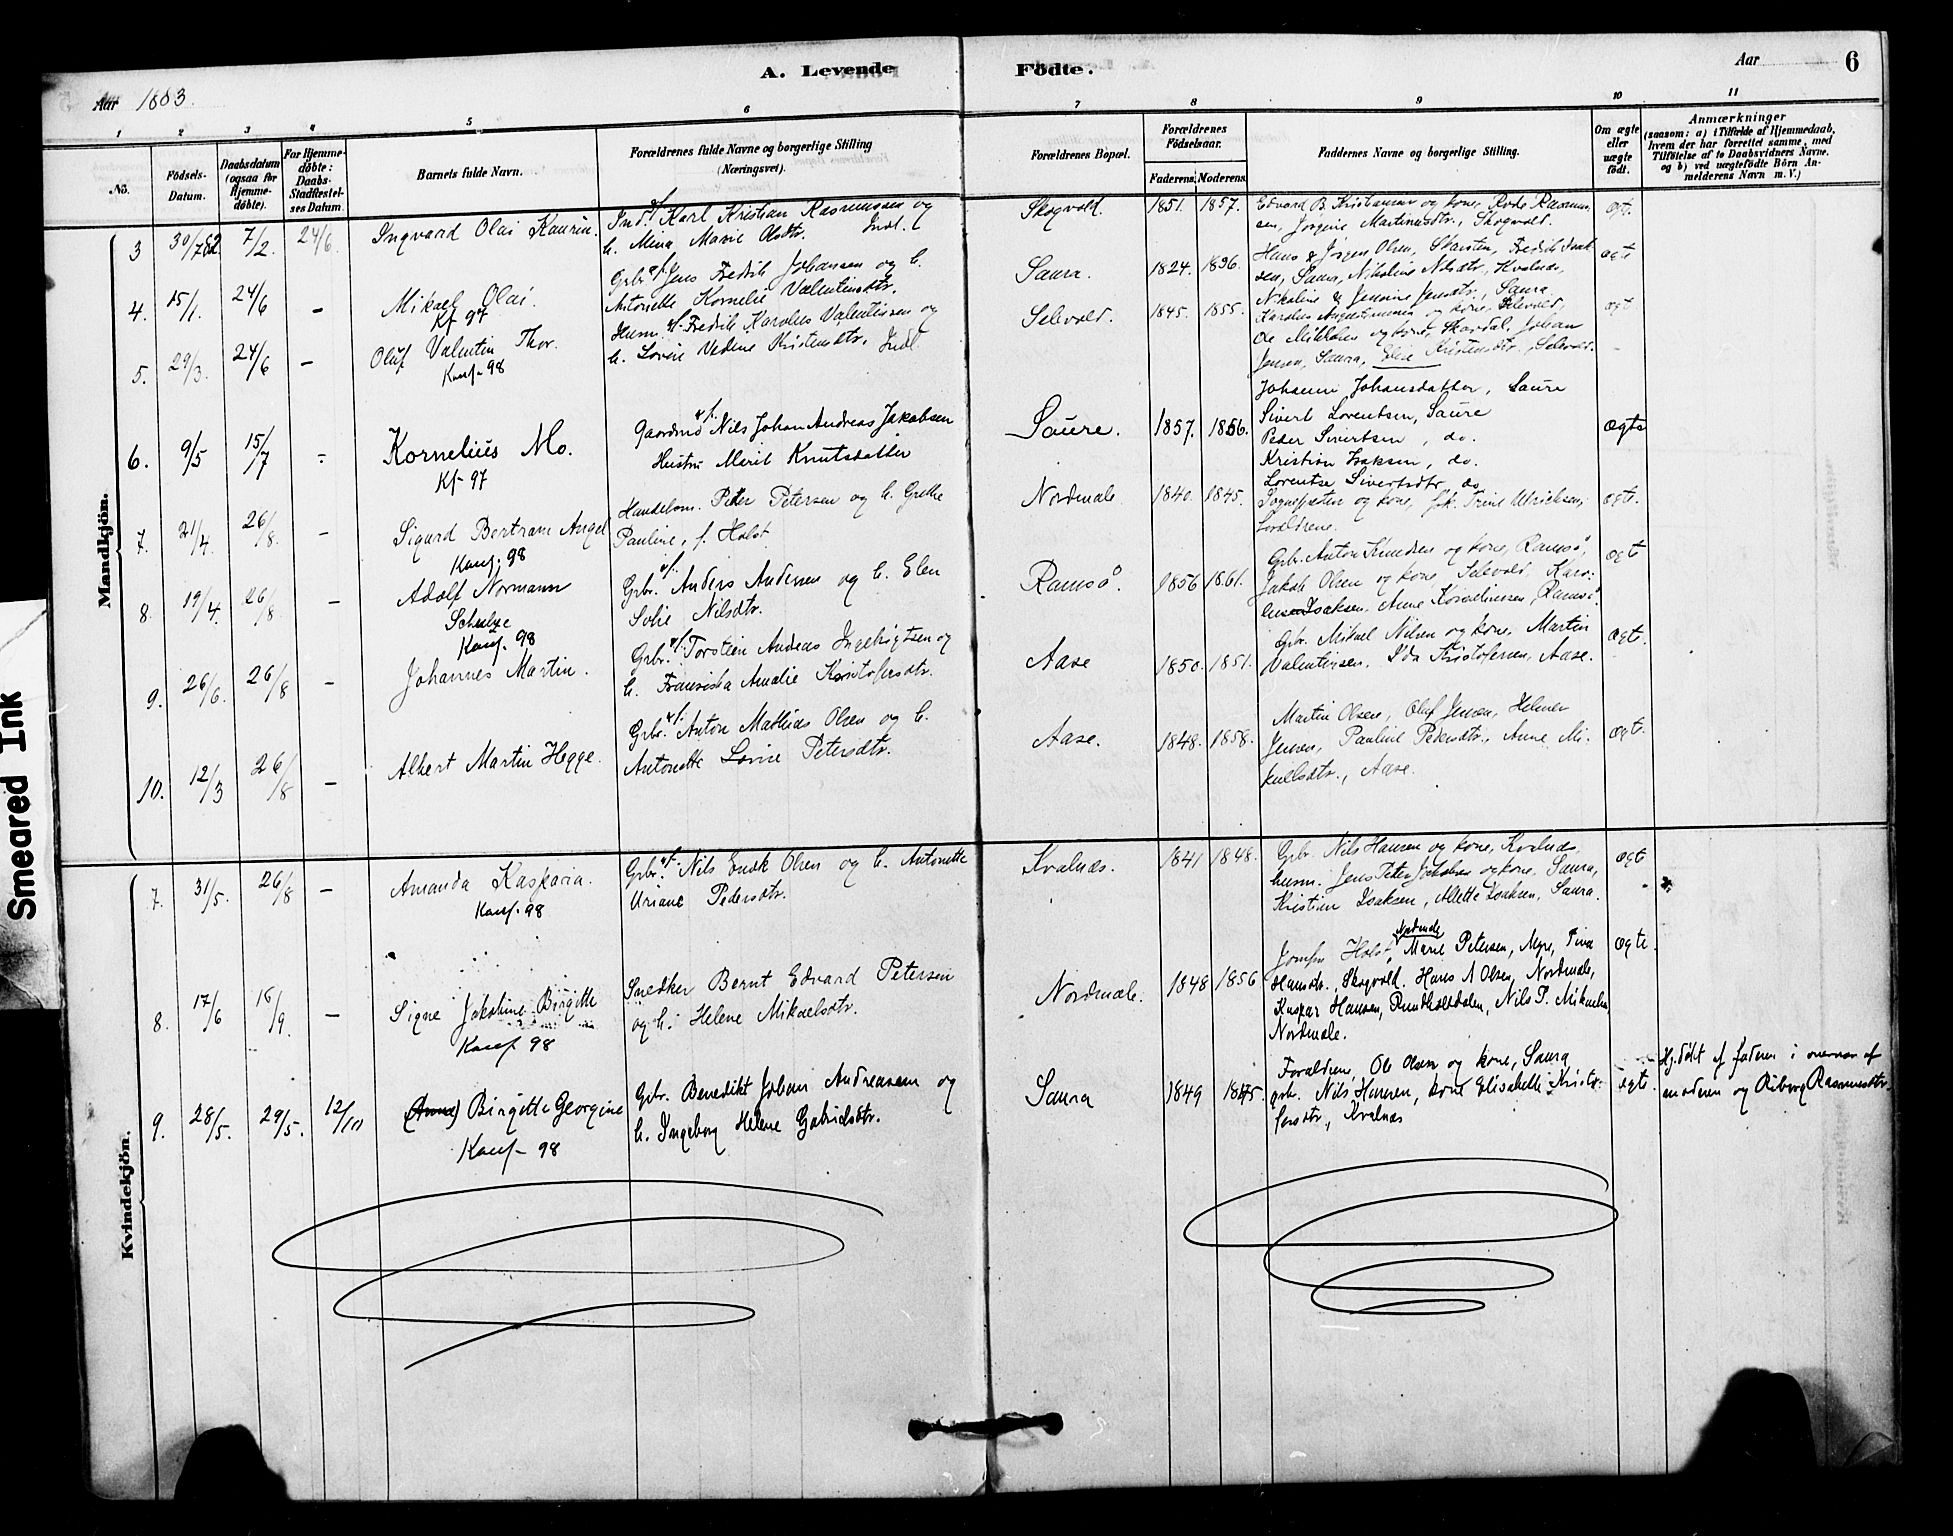 A. Levende Födte.
Aar 1883.
Aar 6
1 2 3 4 5 6 7 8 9 10 11
No.
Födsels-Datum.
Daabsdatum (ogsaa for Hjemme-döbte).
For Hjemme-döbte: Daabs-Stadfæstel-ses Datum.
Barnets fulde Navn.
Forældrenes fulde Navne og borgerlige Stilling (Næringsvei).
Forældrenes Bopæl.
Forældrenes Födselsaar.
Faderens. Moderens.
Faddernes Navne og borgerlige Stilling.
Om ægte eller uægte födt.
Anmærkninger
(saasom: a) i Tilfælde af Hjemmedaab, hvem der har forrettet samme, med Tilföielse af to Daabsvidners Navne, og b) ved uægtefödte Börn Anmelderens Navn m. V.)
Mandkjön.
3 30/7 82 7/2. 24/6. Ingvard Olai Kaurin.
Ind. Karl Kristian Rasmussen og
h. Mina Marie Olsdtr. Indl.
Skogvold. 1851. 1857.
Edvard B. Kristiansen og kone, Rasmus-
sen, Jorgine Martinusdtr., Skogvold.
ægt.
4. 15/1. 24/6 - Mikael Olai.
Kf 97
Grbr. Jens Fredrik Johansen og h.
Antonette Kornelie Valentinsdtr.
Saura. 1824. 1836.
Hans & Jörgen Olsen, Skarsten, Fredrik Isak-
sen, Saura, Nikoline Nilsdtr., Kvalnæs,
Nikoline & Jensine Jensdtr., Saura
ægt
5. 29/3. 24/6 - Oluf Valentin Thor.
Konf. 98
Husm. Fredrik Karolus Valentinsen og
h. Lovise Kristensdtr. Indl.
Selvold. 1845. 1855.
Karolus og kone, Selvold,
Ole Mikkelsen og kone, Skardal, Johan
Jensen, Saura, Kristensdtr., Selvold.
ægt
6. 9/5 15/7 - Kornelius Mo.
Kf- 97
Gaardmd Nils Johan Andreas Jakobsen
Hustru Marit Knutsdatter
Saure. 1857. 1856.
Johanna Johansdatter, Saure
Sivert Lorentsen, Saure
Peder Sivertsen, do.
Kristian Isaksen, do.
Lorentse Sivertsdtr do
ægte
7. 21/4. 26/8. - Sigurd Bertram Angel
Konf. 98
Handelsm. Peter Petersen og h. Grethe
Pauline, f. Holst
Nordmale 1840. 1845.
Sognepræsten og kone, frk. Trine Ulrichsen,
Forældrene.
ægte.
8. 19/4. 26/8. - Adolf Normann
Schulze
Konf. 98
Grbr. Anders Andersen og h. Elen
Sofie Nilsdtr.
Ramsö. 1856 1861.
Grbr. Anton Knudsen og kone, Ramsö,
Jakob Olsen og kone, Selvold, Karo-
Isaksen, Anne Korneliussen, Ramsö.
ægte
9. 26/6. 26/8 - Johannes Martin.
Grbr. Torstein Andreas Ingebrigtsen og
h. Fransiska Amalie Kristofersdtr.
Aase 1850. 1851.
Grbr. Mikael Nilsen og kone, Martin
Valentinsen, Ida Kristofersen, Aase.
ægte.
10. 12/3 26/8 - Albert Martin Hegge.
Grbr. Anton Mathias Olsen og h.
Antonette Lovise Petersdtr.
Aase. 1848. 1858.
Martin Olsen, Oluf Jensen, Helmer
Jensen, Pauline Pedersdtr., Anne Mi-
kelsdtr., Aase.
ægte.
Kvindekjön.
7. 31/5. 26/8 - Amanda Kasparia.
Konf. 98
Grbr. Nils Enok Olsen og h. Antonette
Uriane Pedersdtr.
Kvalnæs. 1841 1848.
Grbr. Nils Hansen og kone, Kvalnæs,
husm. Jens Peter Jakobsen og kone, Saura,
Kristian Isaksen, Alette Isaksen, Saura.
ægte
8. 17/6 16/9. - Signe Jakobine Birgitte
Konf. 98
Snedker Bernt Edvard Petersen
og h. Helene Mikaelsdtr.
Nordmale. 1848 1856
Nordmale
Jomfru Holst, Marie Petersen, Myre, Tina
Hansdtr., Skogvold. Hans A Olsen, Nordmale,
Kaspar Hansen, Nils P. Mikaelsen
Nordmale.
ægte.
9. 28/5. 29/5. 12/10 (Anna) Birgitte Georgine
Konf- 98
Grbr. Benedikt Johan Andreasen og
h. Ingeborg Helene Gabrielsdtr.
Saura 1849 1845.
Forældrene, Ole Olsen og kone, Saura
grbr. Nils Hansen, kone Elisabeth Kristo-
fersdtr., Kvalnæs
ægte.
Hj. döbt af faderen i nærvær af
moderen og Riborg Rasmusdtr.
Smeared Ink